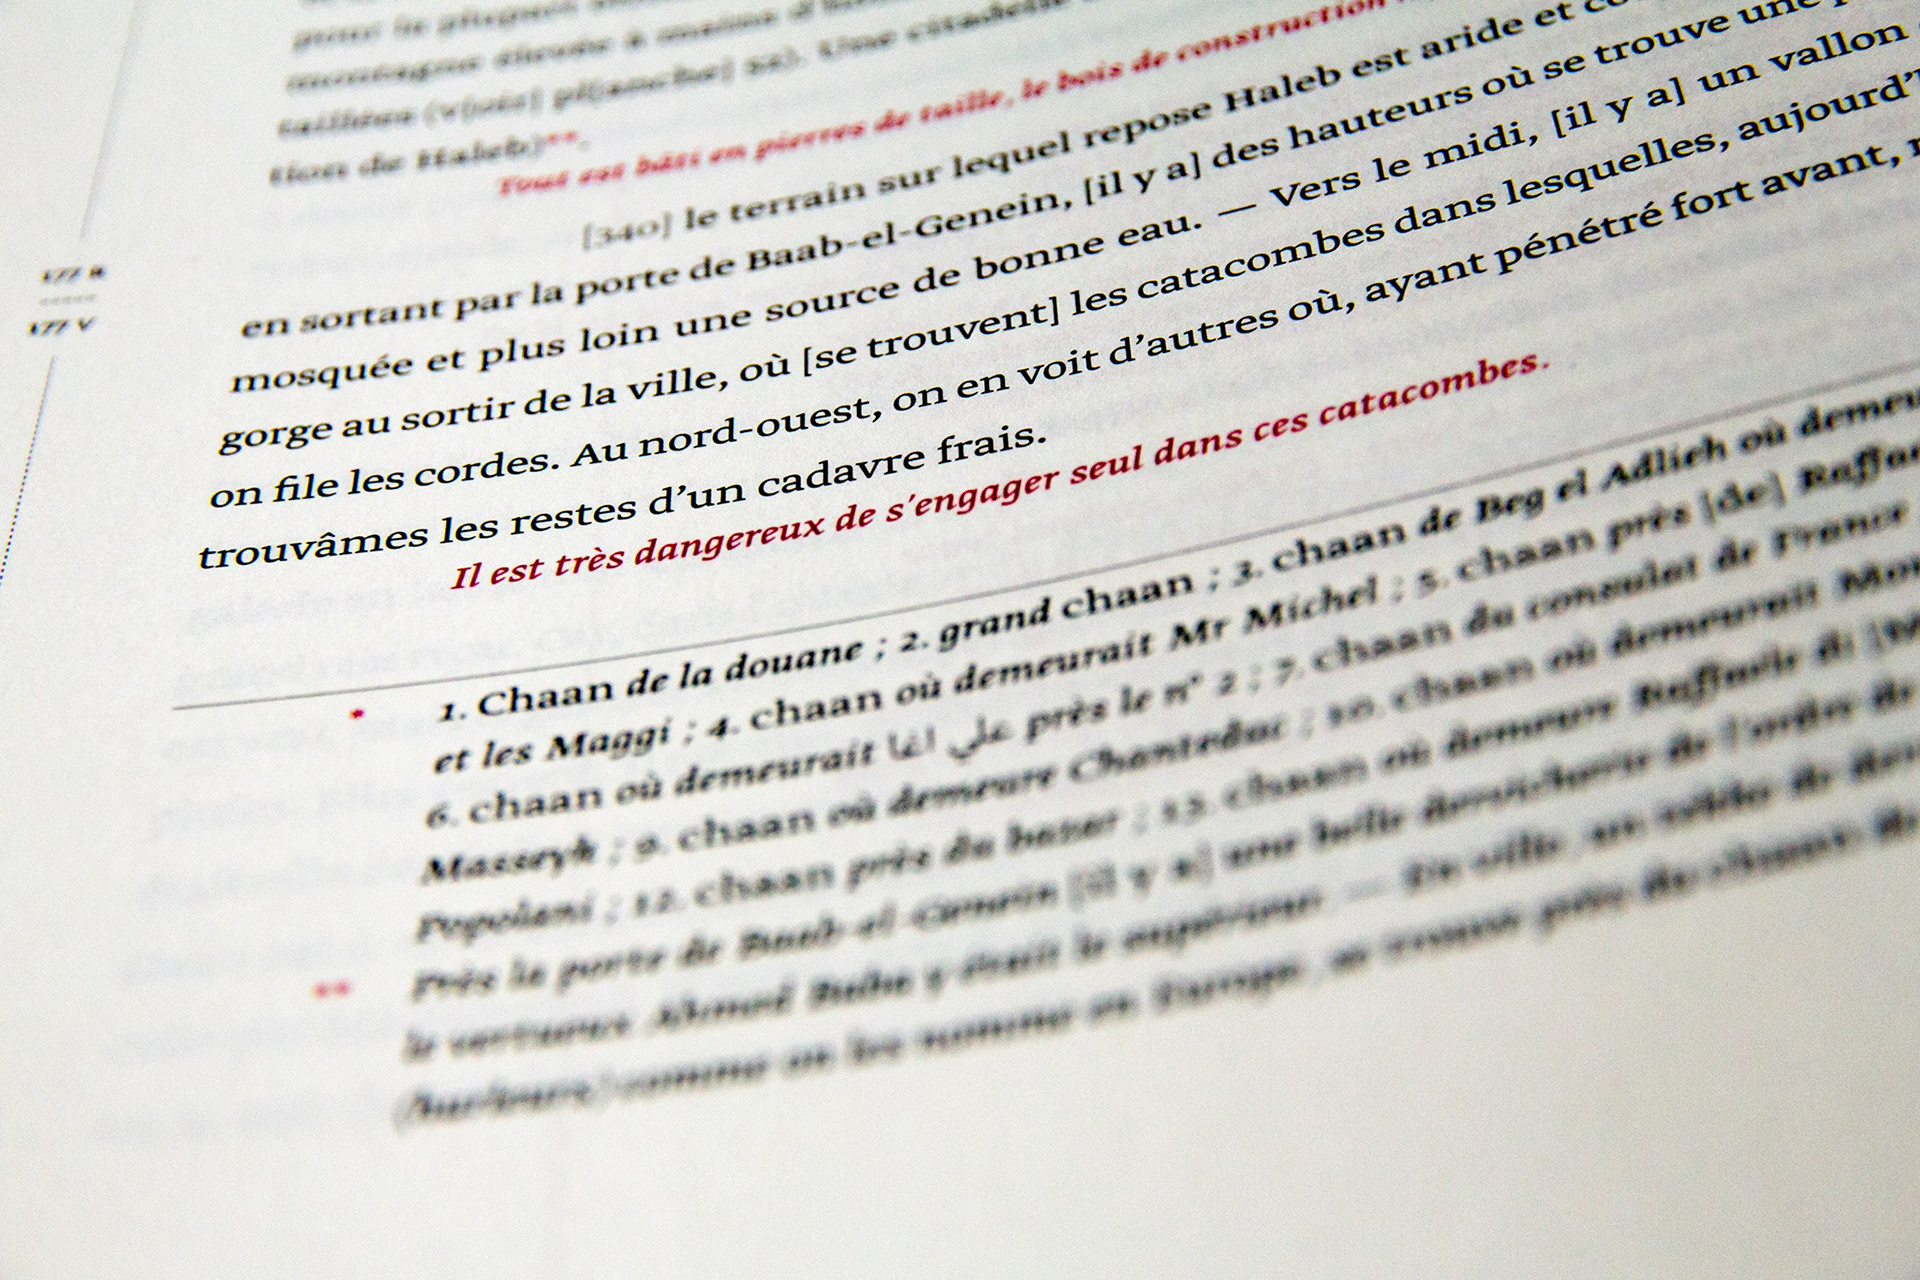 pour la plupart
montagne élevée à mains d'
taillées (v[oir] pl[anche] 22). Une citadelle
tion de Haleb)**.
Tout est bâti en pierres de taille, le bois de construction
[340] le terrain sur lequel repose Haleb est aride et
en sortant par la porte de Baab-el-Genein, [il y a] des hauteurs où se trouve une
mosquée et plus loin une source de bonne eau. — Vers le midi, [il y a] un vallon
gorge au sortir de la ville, où [se trouvent] les catacombes dans lesquelles, aujourd'
on file les cordes. Au nord-ouest, on en voit d'autres où, ayant pénétré fort avant,
trouvâmes les restes d'un cadavre frais.
Il est très dangereux de s'engager seul dans ces catacombes.
177 R
177 V
* 1. Chaan de la douane ; 2. grand chaan ; 3. chaan de Beg el Adlieh où
et les Maggi ; 4. chaan où demeurait Mr Michel ; 5. chaan près [de]
6. chaan où demeurait علي اغا près le n° 2 ; 7. chaan du consulat de France
Masseyk ; 9. chaan où demeure Chanteduc ; 10. chaan où demeurait
Popolani ; 12. chaan près du bazar ; 13. chaan où demeure Raffaele di
** Près la porte de Baab-el-Genein [il y a] une belle derwicherie de l'ordre de
le vertueux Ahmed Baba y était le supérieur. — En ville, un
comme on les nomme en Europe, se trouve près du